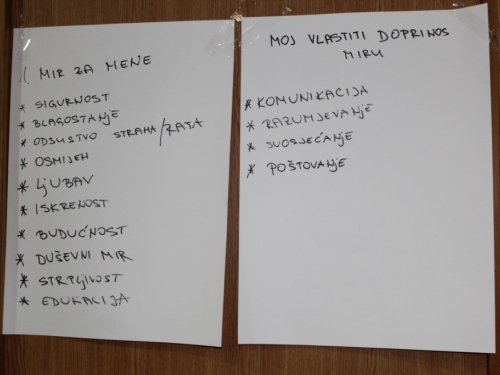 1. MIR ZA MENE
* SIGURNOST
* BLAGOSTANJE
* ODSUSTVO STRAHA/RATA
* OSMIJEH
* LJUBAV
* ISKRENOST
* BUDUĆNOST
* DUŠEVNI MIR
* STRPLJIVOST
* EDUKACIJA
MOJ VLASTITI DOPRINOS
MIRU
* KOMUNIKACIJA
* RAZUMJEVANJE
* SUOSJEĆANJE
* POŠTOVANJE